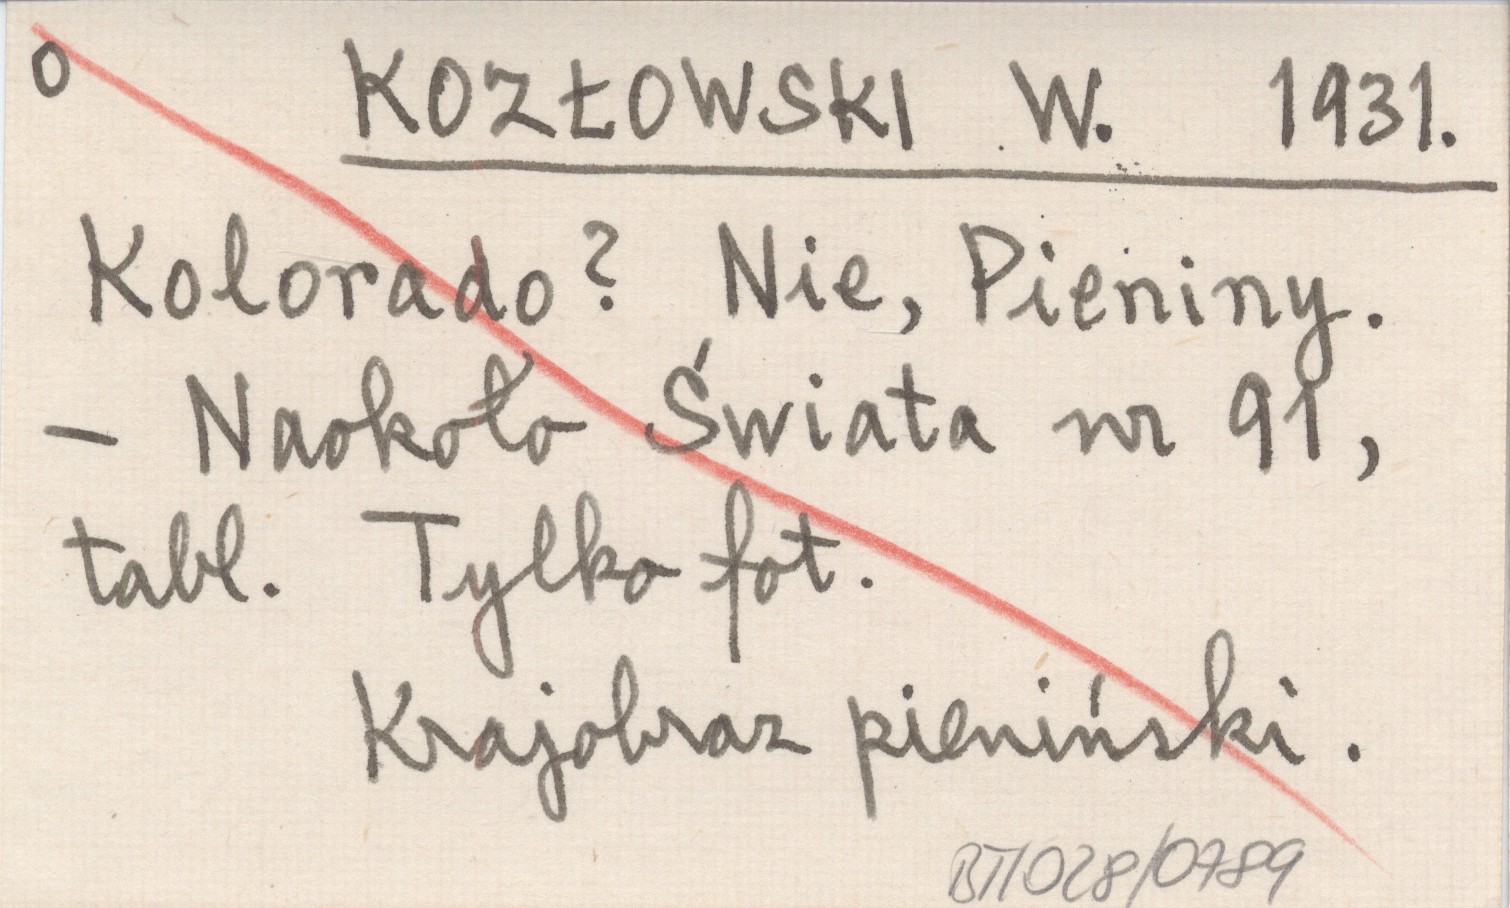 o KOZŁOWSKI W. 1931.
Kolorado? Nie, Pieniny.
– Naokoło Świata nr 91,
tabl. Tylko fot.
Krajobraz pieniński.
BTI028/0789